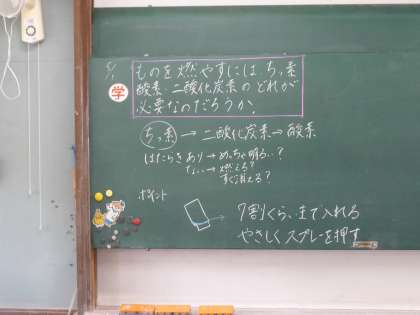 6/1
ものを燃やすには、ちっ素
酸素、二酸化炭素のどれが
必要なのだろうか。
学
ちっ素 → 二酸化炭素 → 酸素
はたらきあり → めっちゃ明るい?
ない → 燃える?
すぐ消える?
ポイント
7割くらいまで入れる
やさしくスプレーを押す